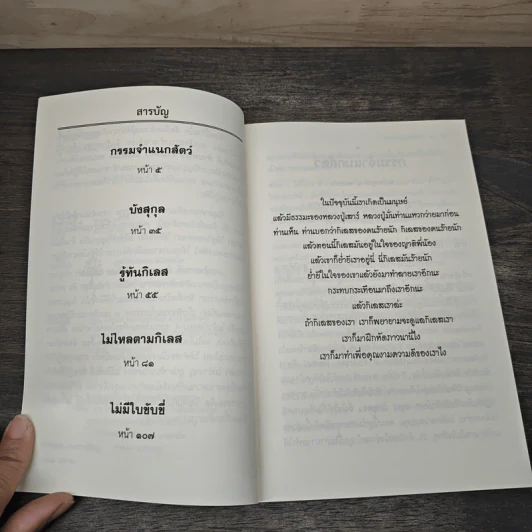 สารบัญ
กรรมจำแนกสัตว์
หน้า ๕
บังสุกุล
หน้า ๓๕
รู้ทันกิเลส
หน้า ๕๕
ไม่ไหลตามกิเลส
หน้า ๘๑
ไม่มีใบขับขี่
หน้า ๑๐๗
ในปัจจุบันนี้เราเกิดเป็นมนุษย์
แล้วมีธรรมะของหลวงปู่เสาร์ หลวงปู่มั่นท่านแหวกว่ายมาก่อน
ท่านเห็น ท่านบอกว่ากิเลสของตนร้ายนัก กิเลสของตนร้ายนัก
แล้วตอนนี้กิเลสมันอยู่ในใจของญาติพี่น้อง
แล้วเขาก็ย่ำยีเราอยู่นี่ นี่กิเลสมันร้ายนัก
ย่ำยีในใจของเขาแล้วยังมาทำลายเราอีกนะ
กระทบกระเทือนมาถึงเราอีกนะ
แล้วกิเลสเราล่ะ
ถ้ากิเลสของเรา เราก็พยายามจะดูแลกิเลสเรา
เราก็มาฝึกหัดภาวนานี่ไง
เราก็มาทำเพื่อคุณงามความดีของเราไง